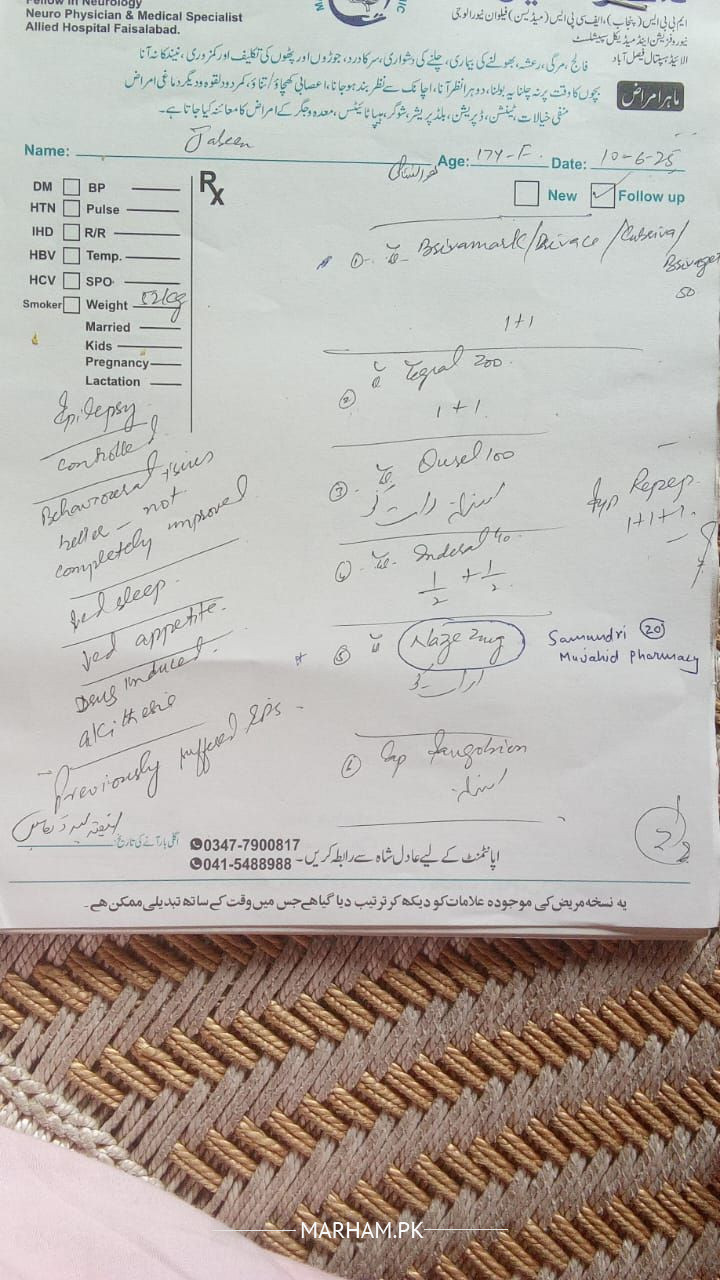 Fellow in Neurology
Neuro Physician & Medical Specialist
Allied Hospital Faisalabad.
ایم بی بی ایس (پنجاب)، ایف سی پی ایس (میڈیسن) فیلوان نیورالوجی
نیوروفزیشن اینڈ میڈیکل سپیشلسٹ
الائیڈ ہسپتال فیصل آباد
فالج، مرگی، رعشہ، بھولنے کی بیماری، چلنے کی دشواری، سرکا درد، جوڑوں اور پٹھوں کی تکلیف اور کمزوری، نیند کا نہ آنا
ماہر امراض
بچوں کا وقت پر نہ چلنا یہ بولنا، دوہرا نظر آنا، اچانک سے نظر بند ہو جانا، اعصابی کھچاؤ / تناؤ، کمر درد لقوہ و دیگر دماغی امراض
منفی خیالات، ٹینشن، ڈپریشن، بلڈ پریشر، شوگر، ہیپاٹائیٹس، معدہ و جگر کے امراض کا معائنہ کیا جاتا ہے۔
Name: Jabeen Age: 17Y-F. Date: 10-6-25
DM BP
HTN Pulse
IHD R/R
HBV Temp.
HCV SPO
Smoker Weight 52kg
Married
Kids
Pregnancy
Lactation
Rx
New Follow up
① Bsivamark/Brivace/
50
1+1
② Tegral 200.
1+1.
③ Qusel 100
رات کو
④ Inderal 40
1/2 + 1/2.
⑤ Naze 2mg
Samundri 20
Mujahid pharmacy
⑥ Cap
1+1+1.
Epilepsy
controlled
Behavioural issues
better - not
completely improved
sleep.
appetite.
Drug induced
akithesie
Previously suffered EPS -
اگلی بار آنے کی تاریخ:
0347-7900817
041-5488988
اپائنٹمنٹ کے لیے عادل شاہ سے رابطہ کریں۔
یہ نسخہ مریض کی موجودہ علامات کو دیکھ کر ترتیب دیا گیا ھے جس میں وقت کے ساتھ تبدیلی ممکن ھے۔
MARHAM.PK